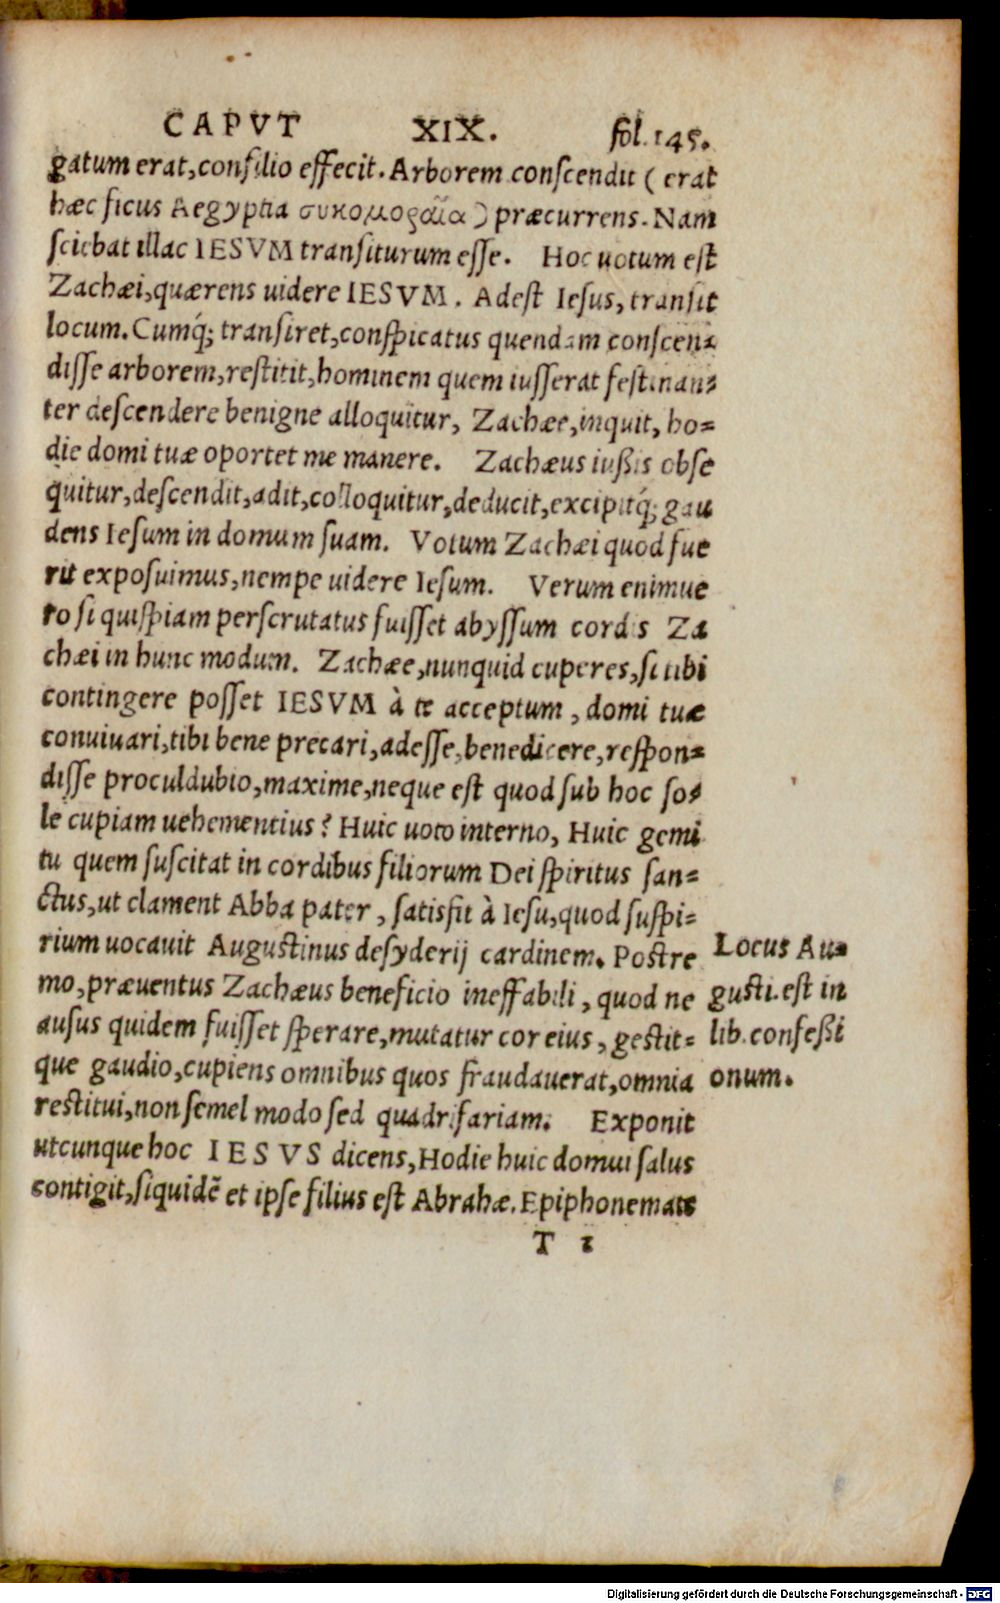 CAPVT XIX. fol. 145.
gatum erat, consilio effecit. Arborem conscendit ( erat
hæc ficus Aegyptia συκομοραία ) præcurrens. Nam
sciebat illac IESVM transiturum esse. Hoc uotum est
Zachæi, quærens uidere IESVM. Adest Iesus, transit
locum. Cumq́; transiret, conspicatus quendam conscen=
disse arborem, restitit, hominem quem iusserat festinan=
ter descendere benigne alloquitur, Zachæe, inquit, ho=
die domi tuæ oportet me manere. Zachæus iußis obse
quitur, descendit, adit, colloquitur, deducit, excipitq́; gau
dens Iesum in domum suam. Votum Zachæi quod fue
rit exposuimus, nempe uidere Iesum. Verum enimue
ro si quispiam perscrutatus fuisset abyssum cordis Za
chæi in hunc modum. Zachæe, nunquid cuperes, si tibi
contingere posset IESVM à te acceptum, domi tuæ
conuiuari, tibi bene precari, adesse, benedicere, respon=
disse proculdubio, maxime, neque est quod sub hoc so=
le cupiam uehementius? Huic uoto interno, Huic gemi
tu quem suscitat in cordibus filiorum Dei spiritus san=
ctus, ut clament Abba pater, satisfit à Iesu, quod suspi=
rium uocauit Augustinus desyderij cardinem. Postre
mo, præuentus Zachæus beneficio ineffabili, quod ne
ausus quidem fuisset sperare, mutatur cor eius, gestit=
que gaudio, cupiens omnibus quos fraudauerat, omnia
restitui, non semel modo sed quadrifariam. Exponit
utcunque hoc IESVS dicens, Hodie huic domui salus
contigit, siquidē et ipse filius est Abrahæ. Epiphonemate
T 1
Locus Au=
gusti. est in
lib. confeßi
onum.
Digitalisierung gefördert durch die Deutsche Forschungsgemeinschaft - DFG